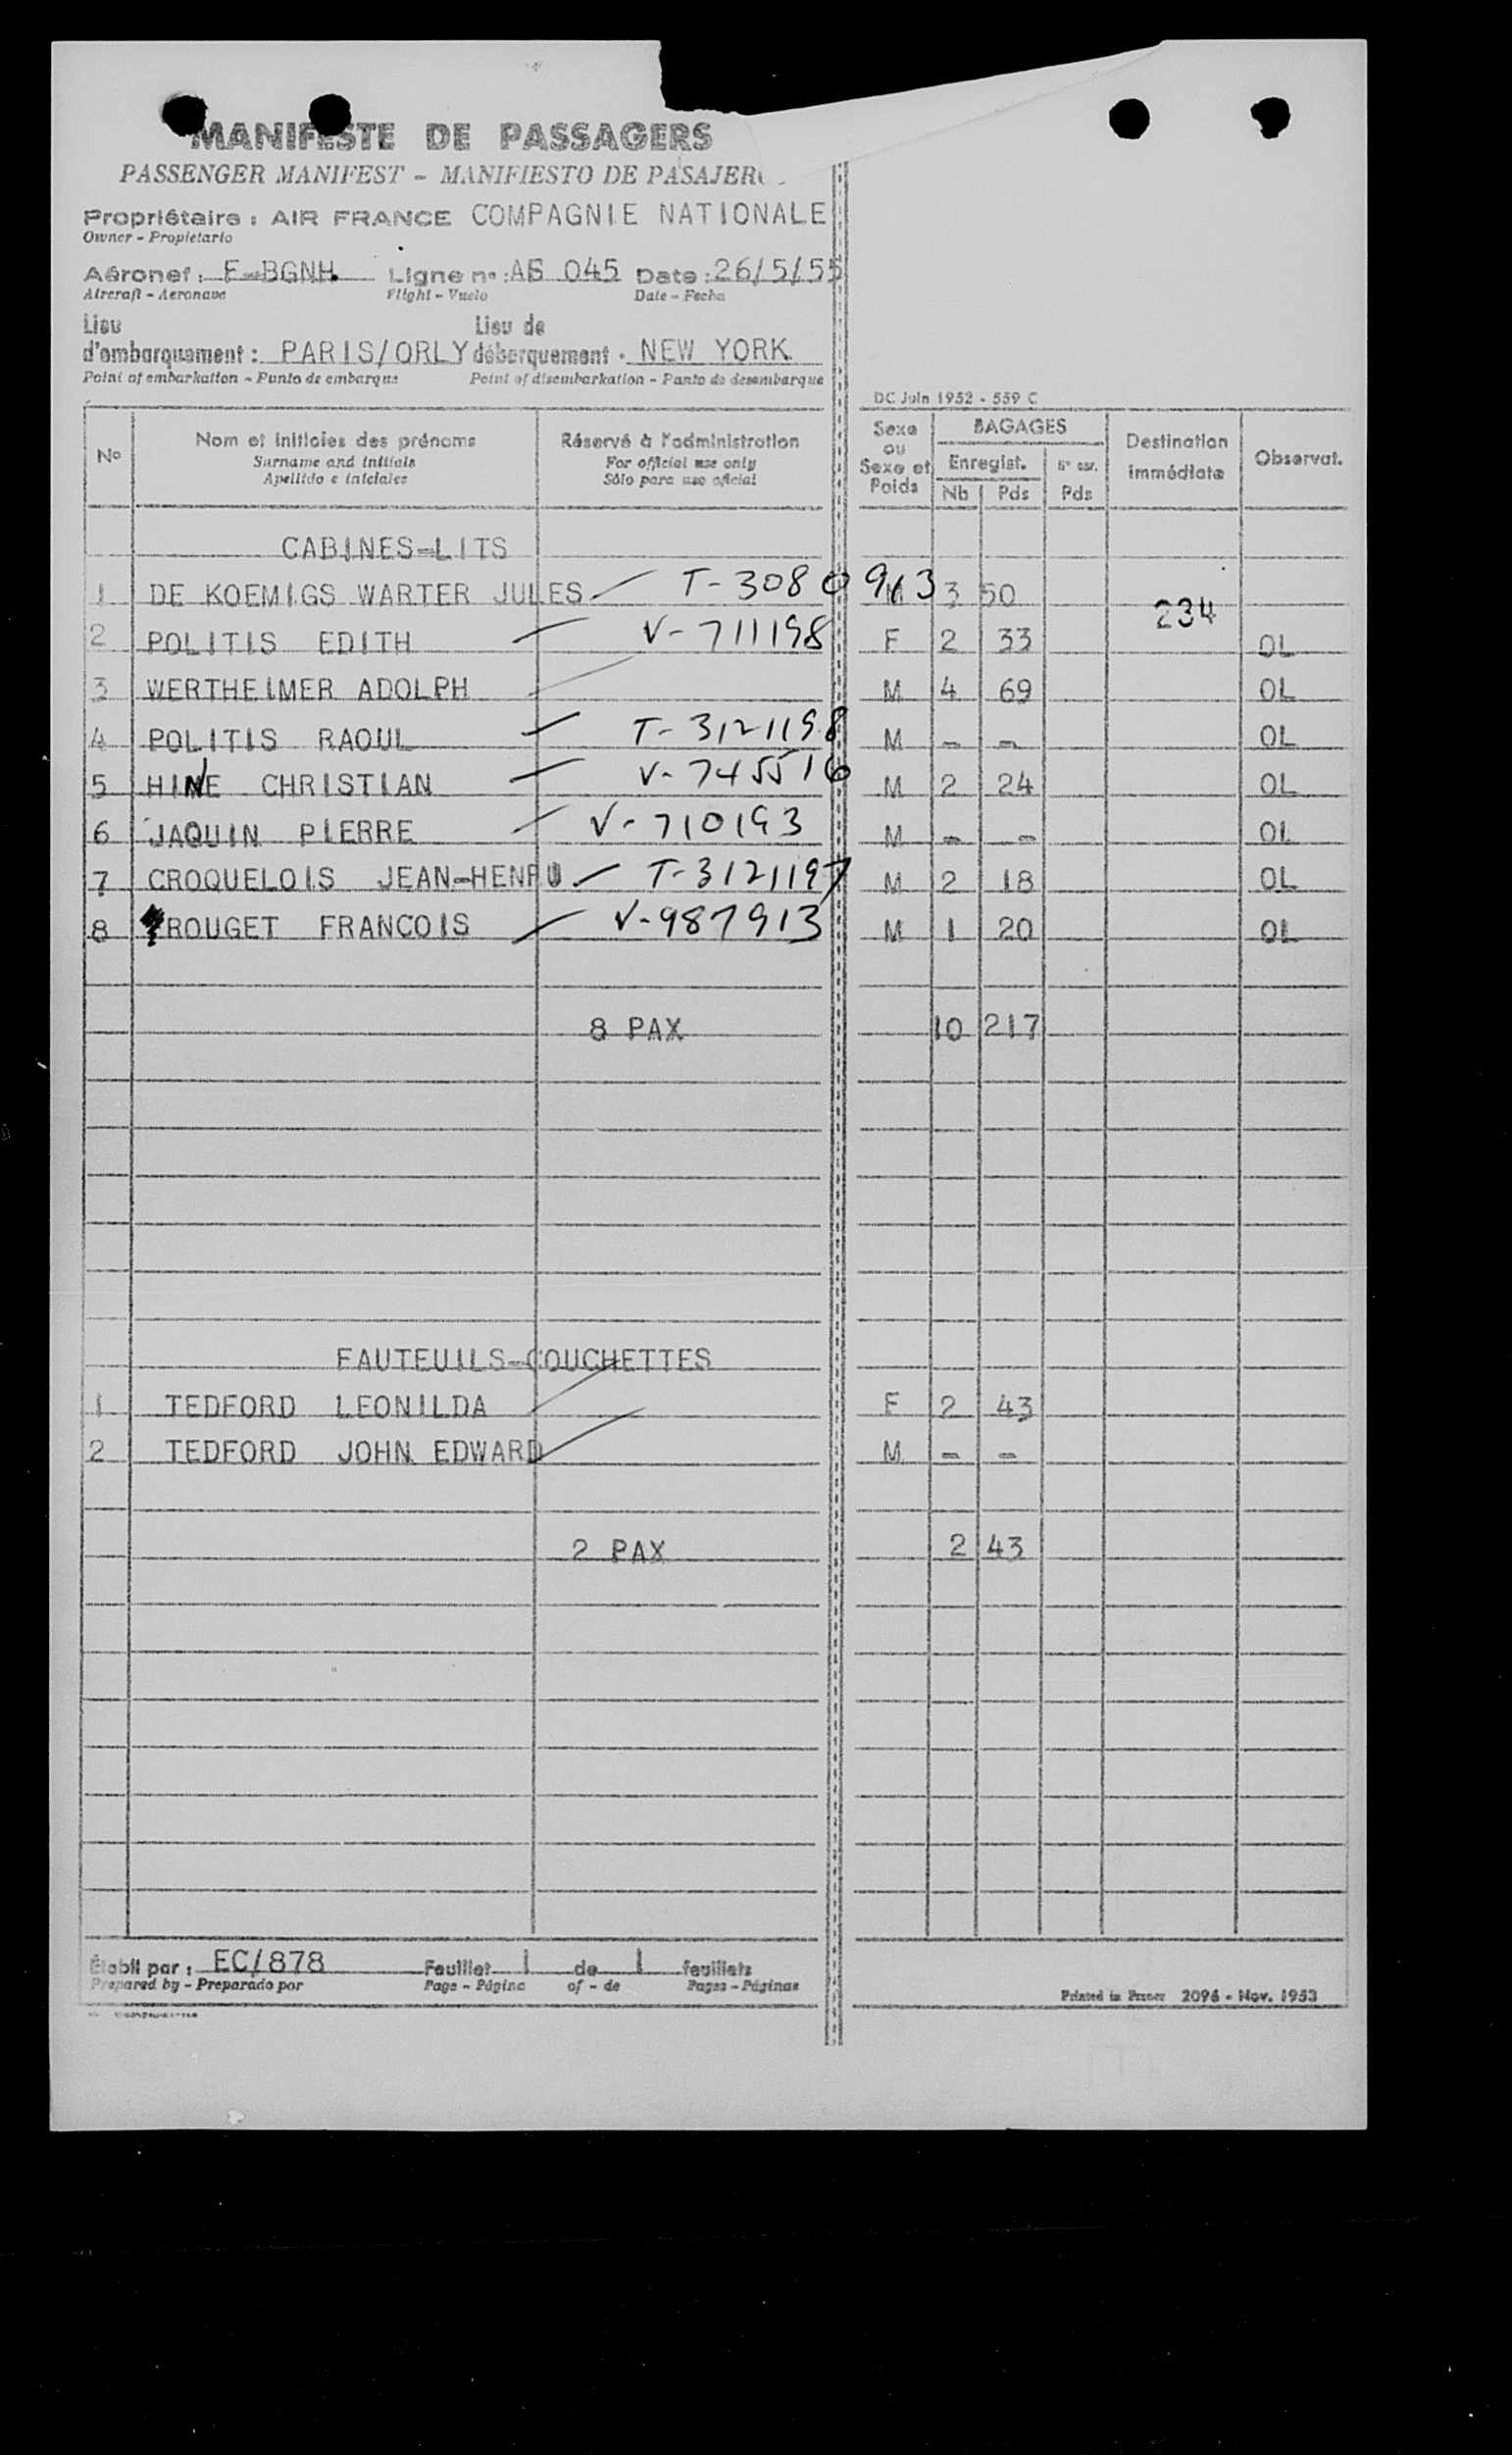 MANIFESTE DE PASSAGERS
PASSENGER MANIFEST - MANIFIESTO DE PASAJER
Propriétaire : AIR FRANCE COMPAGNIE NATIONALE
Owner - Propietario
Aéronef : F-BGNH Ligne nº : 045 Date : 26/5/55
Aircraft - Aeronave Flight - Vuelo Date - Fecha
Lieu Lieu de
d'embarquement : PARIS/ORLY débarquement . NEW YORK
Point of embarkation - Punto de embarque Point of disembarkation - Punto de desembarque
DC Juin 1952 - 559 C
Nº Nom et initiales des prénoms Réservé à l'administration Sexe ou Sexe et Poids BAGAGES Destination immédiate Observat.
Surname and initials For official use only Enregist.
Apellido e iniciales Sólo para uso oficial Nb Pds Pds
CABINES-LITS
1 DE KOEMIGS WARTER JULES T-3080913 3 50
234
2 POLITIS EDITH V-711198 F 2 33 OL
3 WERTHEIMER ADOLPH M 4 69 OL
4 POLITIS RAOUL T-3121198 M - - OL
5 HINE CHRISTIAN V-745516 M 2 24 OL
6 JAQUIN PIERRE V-710193 M - - OL
7 CROQUELOIS JEAN-HENRU T-3121197 M 2 18 OL
8 ROUGET FRANCOIS V-987913 M 1 20 OL
8 PAX 10 217
FAUTEUILS-COUCHETTES
1 TEDFORD LEONILDA F 2 43
2 TEDFORD JOHN EDWARD M - -
2 PAX 2 43
Établi par : EC/878 Feuillet 1 de 1 feuillets
Prepared by - Preparado por Page - Página of - de Pages - Páginas
Printed in France 2096 - Nov. 1953